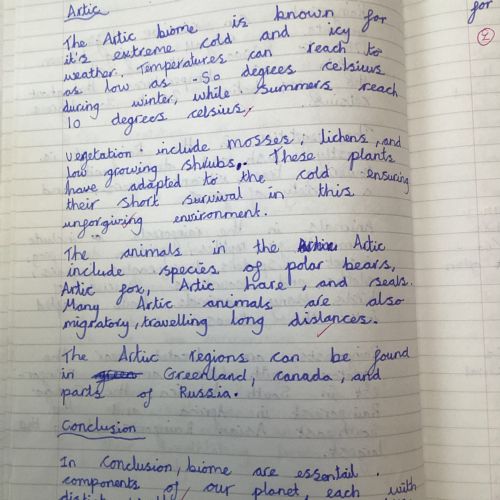 Artic
The Artic biome is known for
it's extreme cold and icy
weather. Temperatures can reach to
as low as -50 degrees celsius
during winter, while summers reach
10 degrees celsius.
vegetation include mosses, lichens, and
low growing shrubs. These plants
have adapted to the cold ensuring
their short survival in this
unforgiving environment.
The animals in the Artic
include species of polar bears,
Artic fox, Artic hare, and seals.
Many Artic animals are also
migratory, travelling long distances.
The Artic regions can be found
in Greenland, Canada, and
parts of Russia.
Conclusion
In conclusion, biome are essentail
components of our planet, each with
for